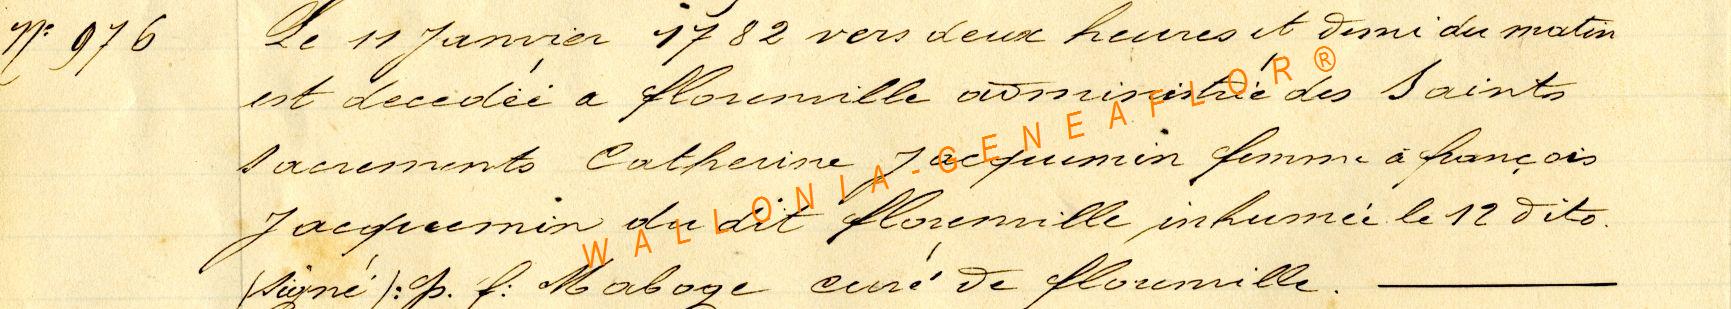 N° 976 Le 11 Janvier 1782 vers deux heures et demi du matin
est decedéé a florenville administrée des Saints
Sacrements Catherine Jacquemin femme à françois
Jacquemin du dit florenville inhumée le 12 dito.
(signé): p. f: Maboge curé de florenville.
WALLONIA-GENEAFLOR®